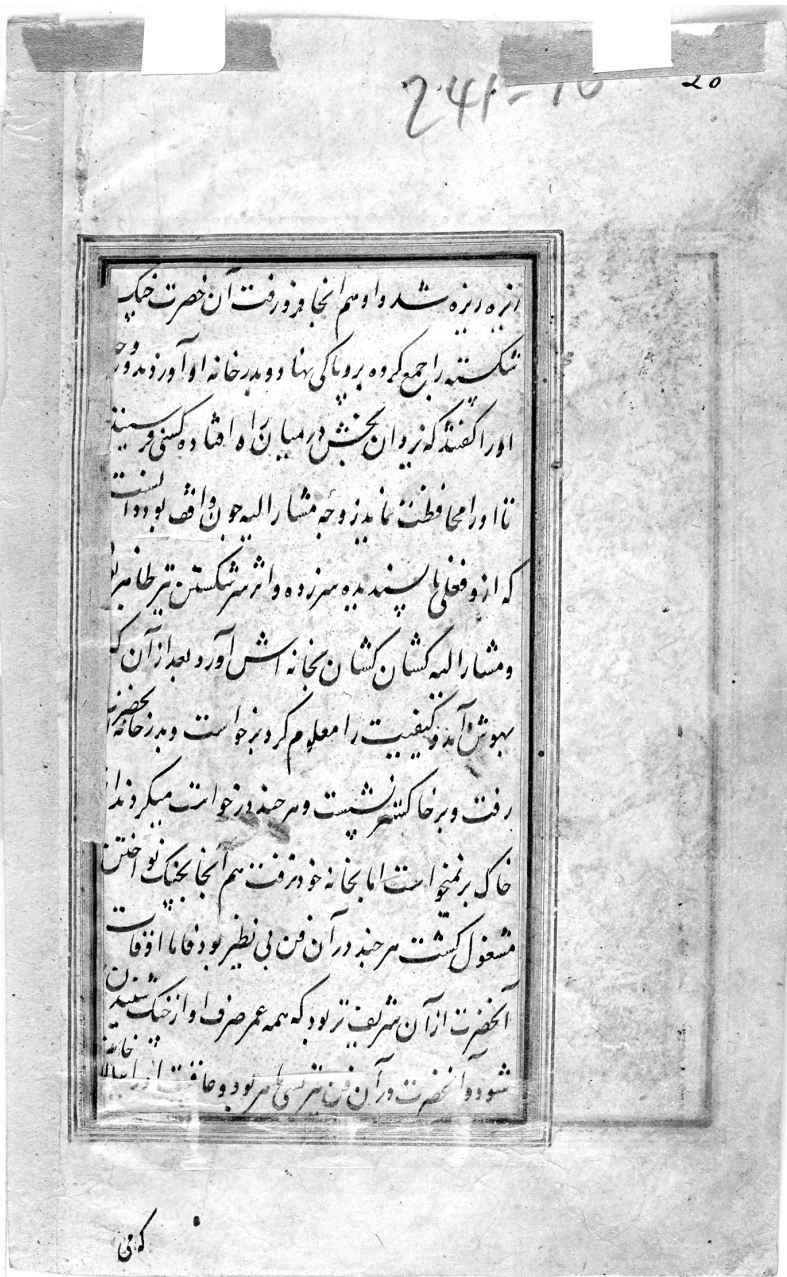 241-16
20
ریزه ریزه شد و او هم انجا فرو رفت آن حضرت چنک
شکسته را جمع کرده بر وپاکی نهاد و بدر خانه او آوردند و
او را کفتند که نروان بخش در میان راه افتاده کسی فرستید
تا او را محافظت نماید زوجه مشار الیه چون واقف بود دانست
که ازو فعلی ناپسندیده سر زده و اثر سر شکستن نیز ظاهر
و مشار الیه کشان کشان بخانه اش آورد بعد از آن که
بهوش آمد و کیفیت را معلوم کرد برخواست و بدر خانه آنحضرت
رفت و بر خاکستر نشست و هر چند درخواست میکردند از
خاک بر نمیخواست اما بخانه خود نرفت هم آنجا بچنک نواختن
مشغول کشت هر چند در آن فن بی نظیر بود فاما اوقات
آنحضرت از آن شریف تر بود که همه عمر صرف اواز چنک شنیدن
شود و آنحضرت در آن فن نیز بسی ماهر بود و عاقبت
که می